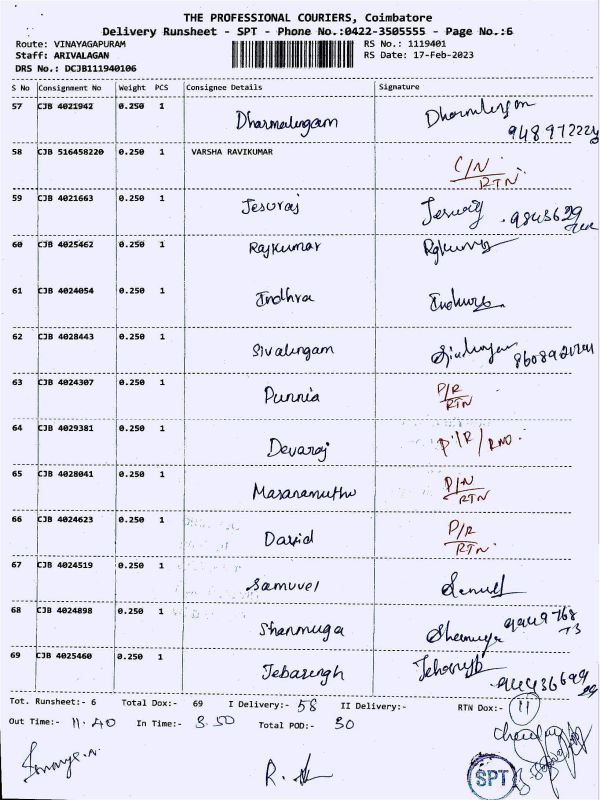 THE PROFESSIONAL COURIERS, Coimbatore
Delivery Runsheet - SPT - Phone No.:0422-3505555 - Page No.:6
Route: VINAYAGAPURAM RS No.: 1119401
Staff: ARIVALAGAN RS Date: 17-Feb-2023
DRS No.: DCJB111940106
S No Consignment No Weight PCS Consignee Details Signature
57 CJB 4021942 0.250 1 Dharmalingam
58 CJB 516458220 0.250 1 VARSHA RAVIKUMAR C/N RTN
59 CJB 4021663 0.250 1 Jesuraj
60 CJB 4025462 0.250 1 Rajkumar
61 CJB 4024054 0.250 1 Indhra
62 CJB 4028443 0.250 1 Sivalingam
63 CJB 4024307 0.250 1 Punnia P/R RTN
64 CJB 4029381 0.250 1 Devaraj P/R /
65 CJB 4028041 0.250 1 Masanamuthu P/N RTN
66 CJB 4024623 0.250 1 David P/R RTN
67 CJB 4024519 0.250 1 Samuvel
68 CJB 4024898 0.250 1 Shanmuga
69 CJB 4025460 0.250 1 Jebasingh
Tot. Runsheet:- 6 Total Dox:- 69 I Delivery:- 58 II Delivery:- RTN Dox:- 11
Out Time:- 11.40 In Time:- 3.50 Total POD:- 30
SPT